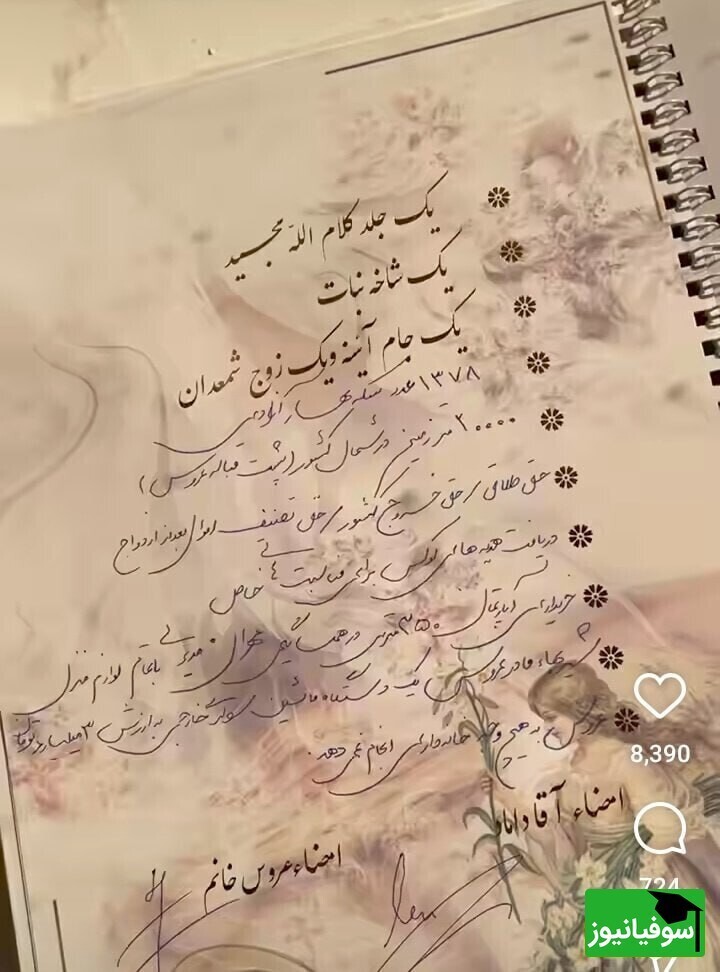 یک جلد کلام الله مجید
یک شاخه نبات
یک جام آئینه و یک زوج شمعدان
۱۳۷۸ عدد سکه بهار آزادی
۲۰۰۰۰ متر زمین در شمال کشور (پشت قباله عروس)
حق طلاق / حق خروج کشور / حق تصنیف اموال بعد از ازدواج
دریافت هدیه های لوکس برای مناسبت های خاص
خریداری آپارتمان ۳۵۰ متری در همسایگی با تمام لوازم منزل
شیربهاء مادر عروس یک دستگاه ماشین سواری خارجی به ارزش ۳ میلیارد تومان
عروس به هیچ وجه خانه داری انجام نمی دهد.
امضاء آقا داماد
امضاء عروس خانم
8,390
724
سوفیانیوز